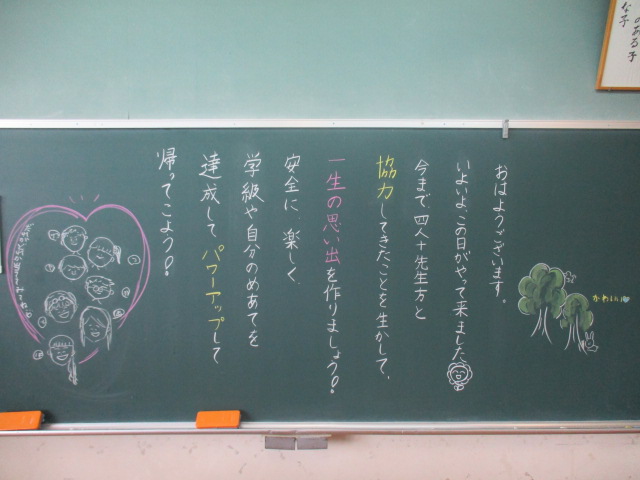 のある子
な子
かわいい
おはようございます。
いよいよ、この日がやって来ました
今まで四人+先生方と
協力してきたことを生かして、
一生の思い出を作りましょう!
安全に、楽しく、
学級や自分のめあてを
達成して、パワーアップして
帰ってこよう!